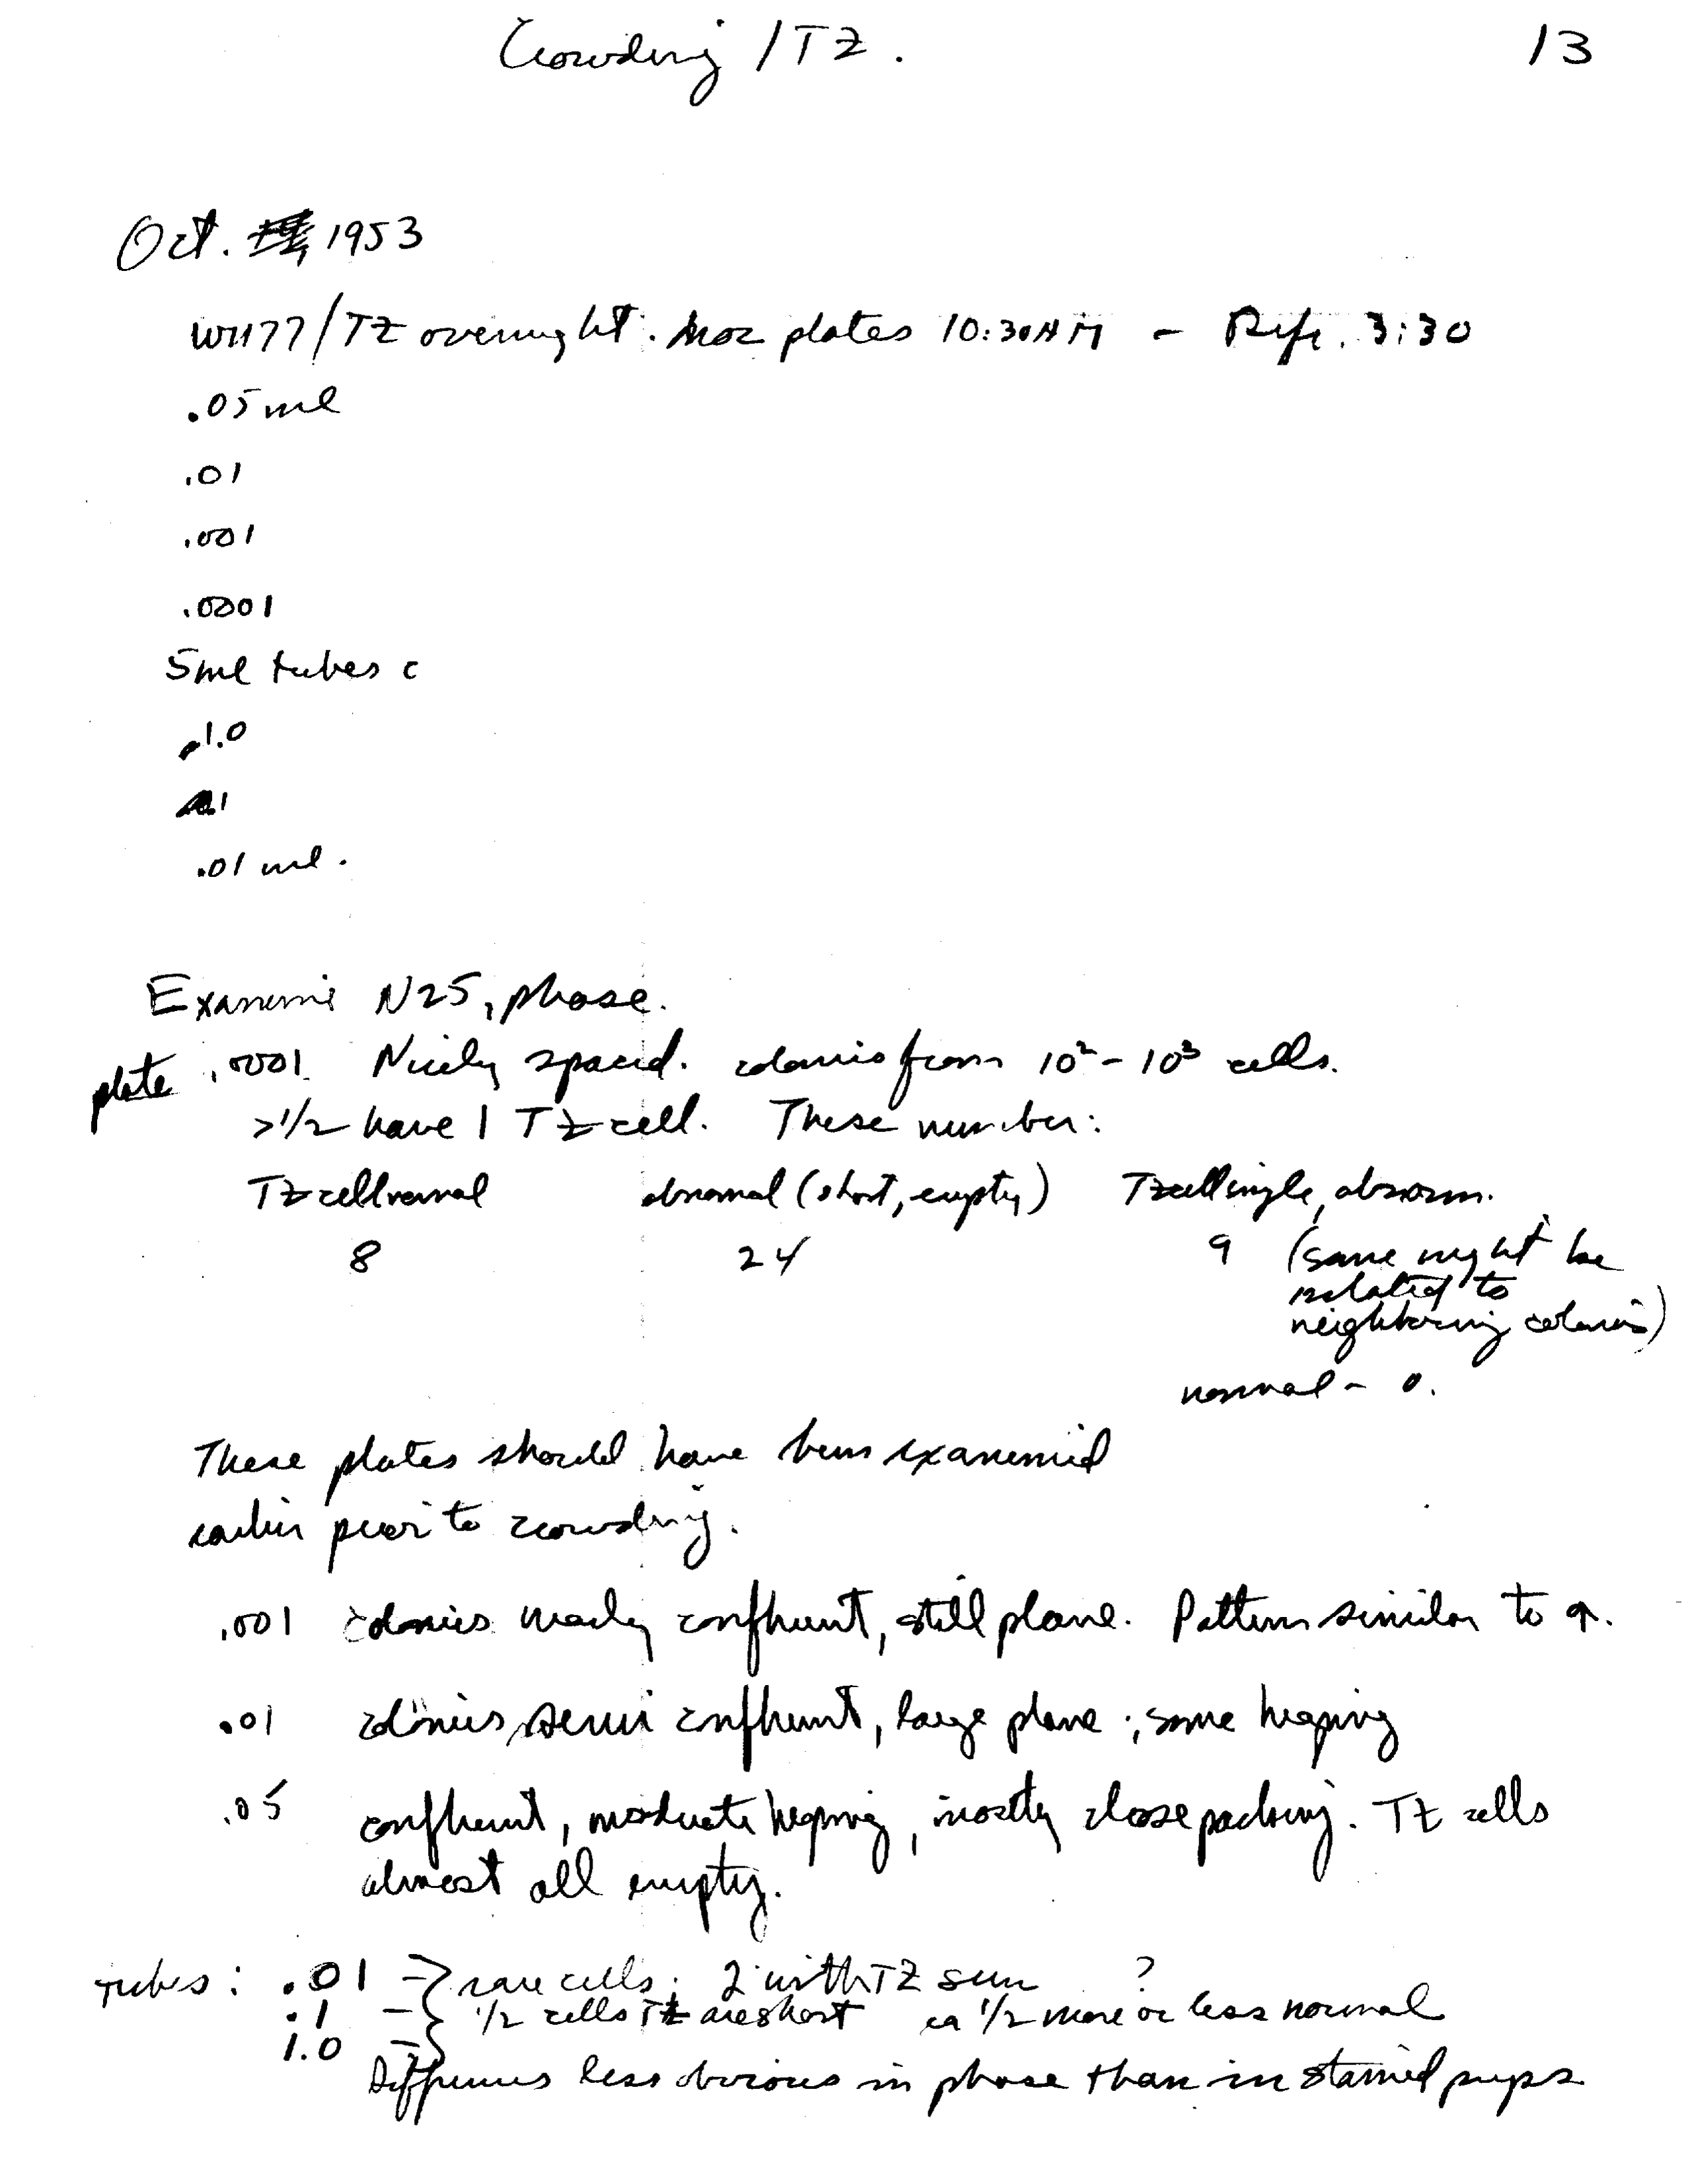 Crowding / TZ. 13
Oct. 1953
W1177/TZ overnight. plates 10:30AM - Refr. 3:30
.05 ml
.01
.001
.0001
5ml tubes c
1.0
.1
.01 ml.
Examine N25, phase.
plate .0001. Nicely spaced. colonies from 10² - 10³ cells.
>1/2 have 1 TZ cell. These number:
TZ cell normal abnormal (short, empty) TZ cell single, abnorm.
8 24 9 (some might be
related to
neighboring colonies)
normal - 0.
These plates should have been examined
earlier prior to crowding.
.001 colonies nearly confluent, still plane. Pattern similar to ↑.
.01 colonies semi confluent, large plane; some heaping
.05 confluent, moderate heaping, mostly close packing. TZ cells
almost all empty.
Tubes: .01 - rare cells; 2 with TZ seen ?
.1 - 1/2 cells TZ are short ca 1/2 more or less normal
1.0 -
Differences less obvious in phase than in stained preps